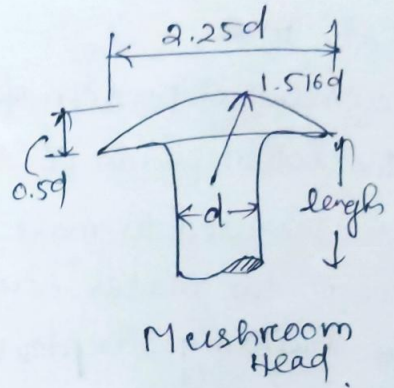 2.25d
1.516d
0.5d
d
lengh
Mushroom
Head